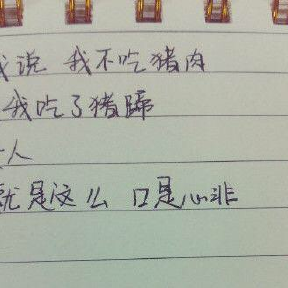 我说 我不吃猪肉
我吃了猪蹄
人
就是这么 口是心非